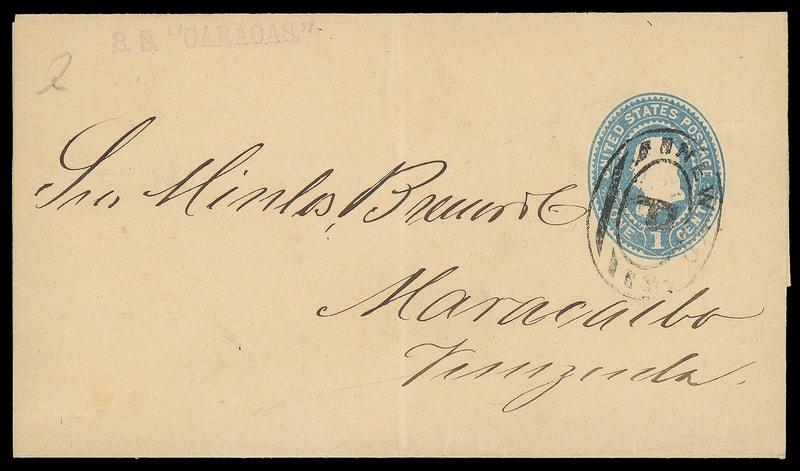 S. S. "CARACAS."
2
UNITED STATES POSTAGE
ONE 1 CENT
NEW
P
Sres Minlos, Breuer & C
Maracaibo
Venezuela.